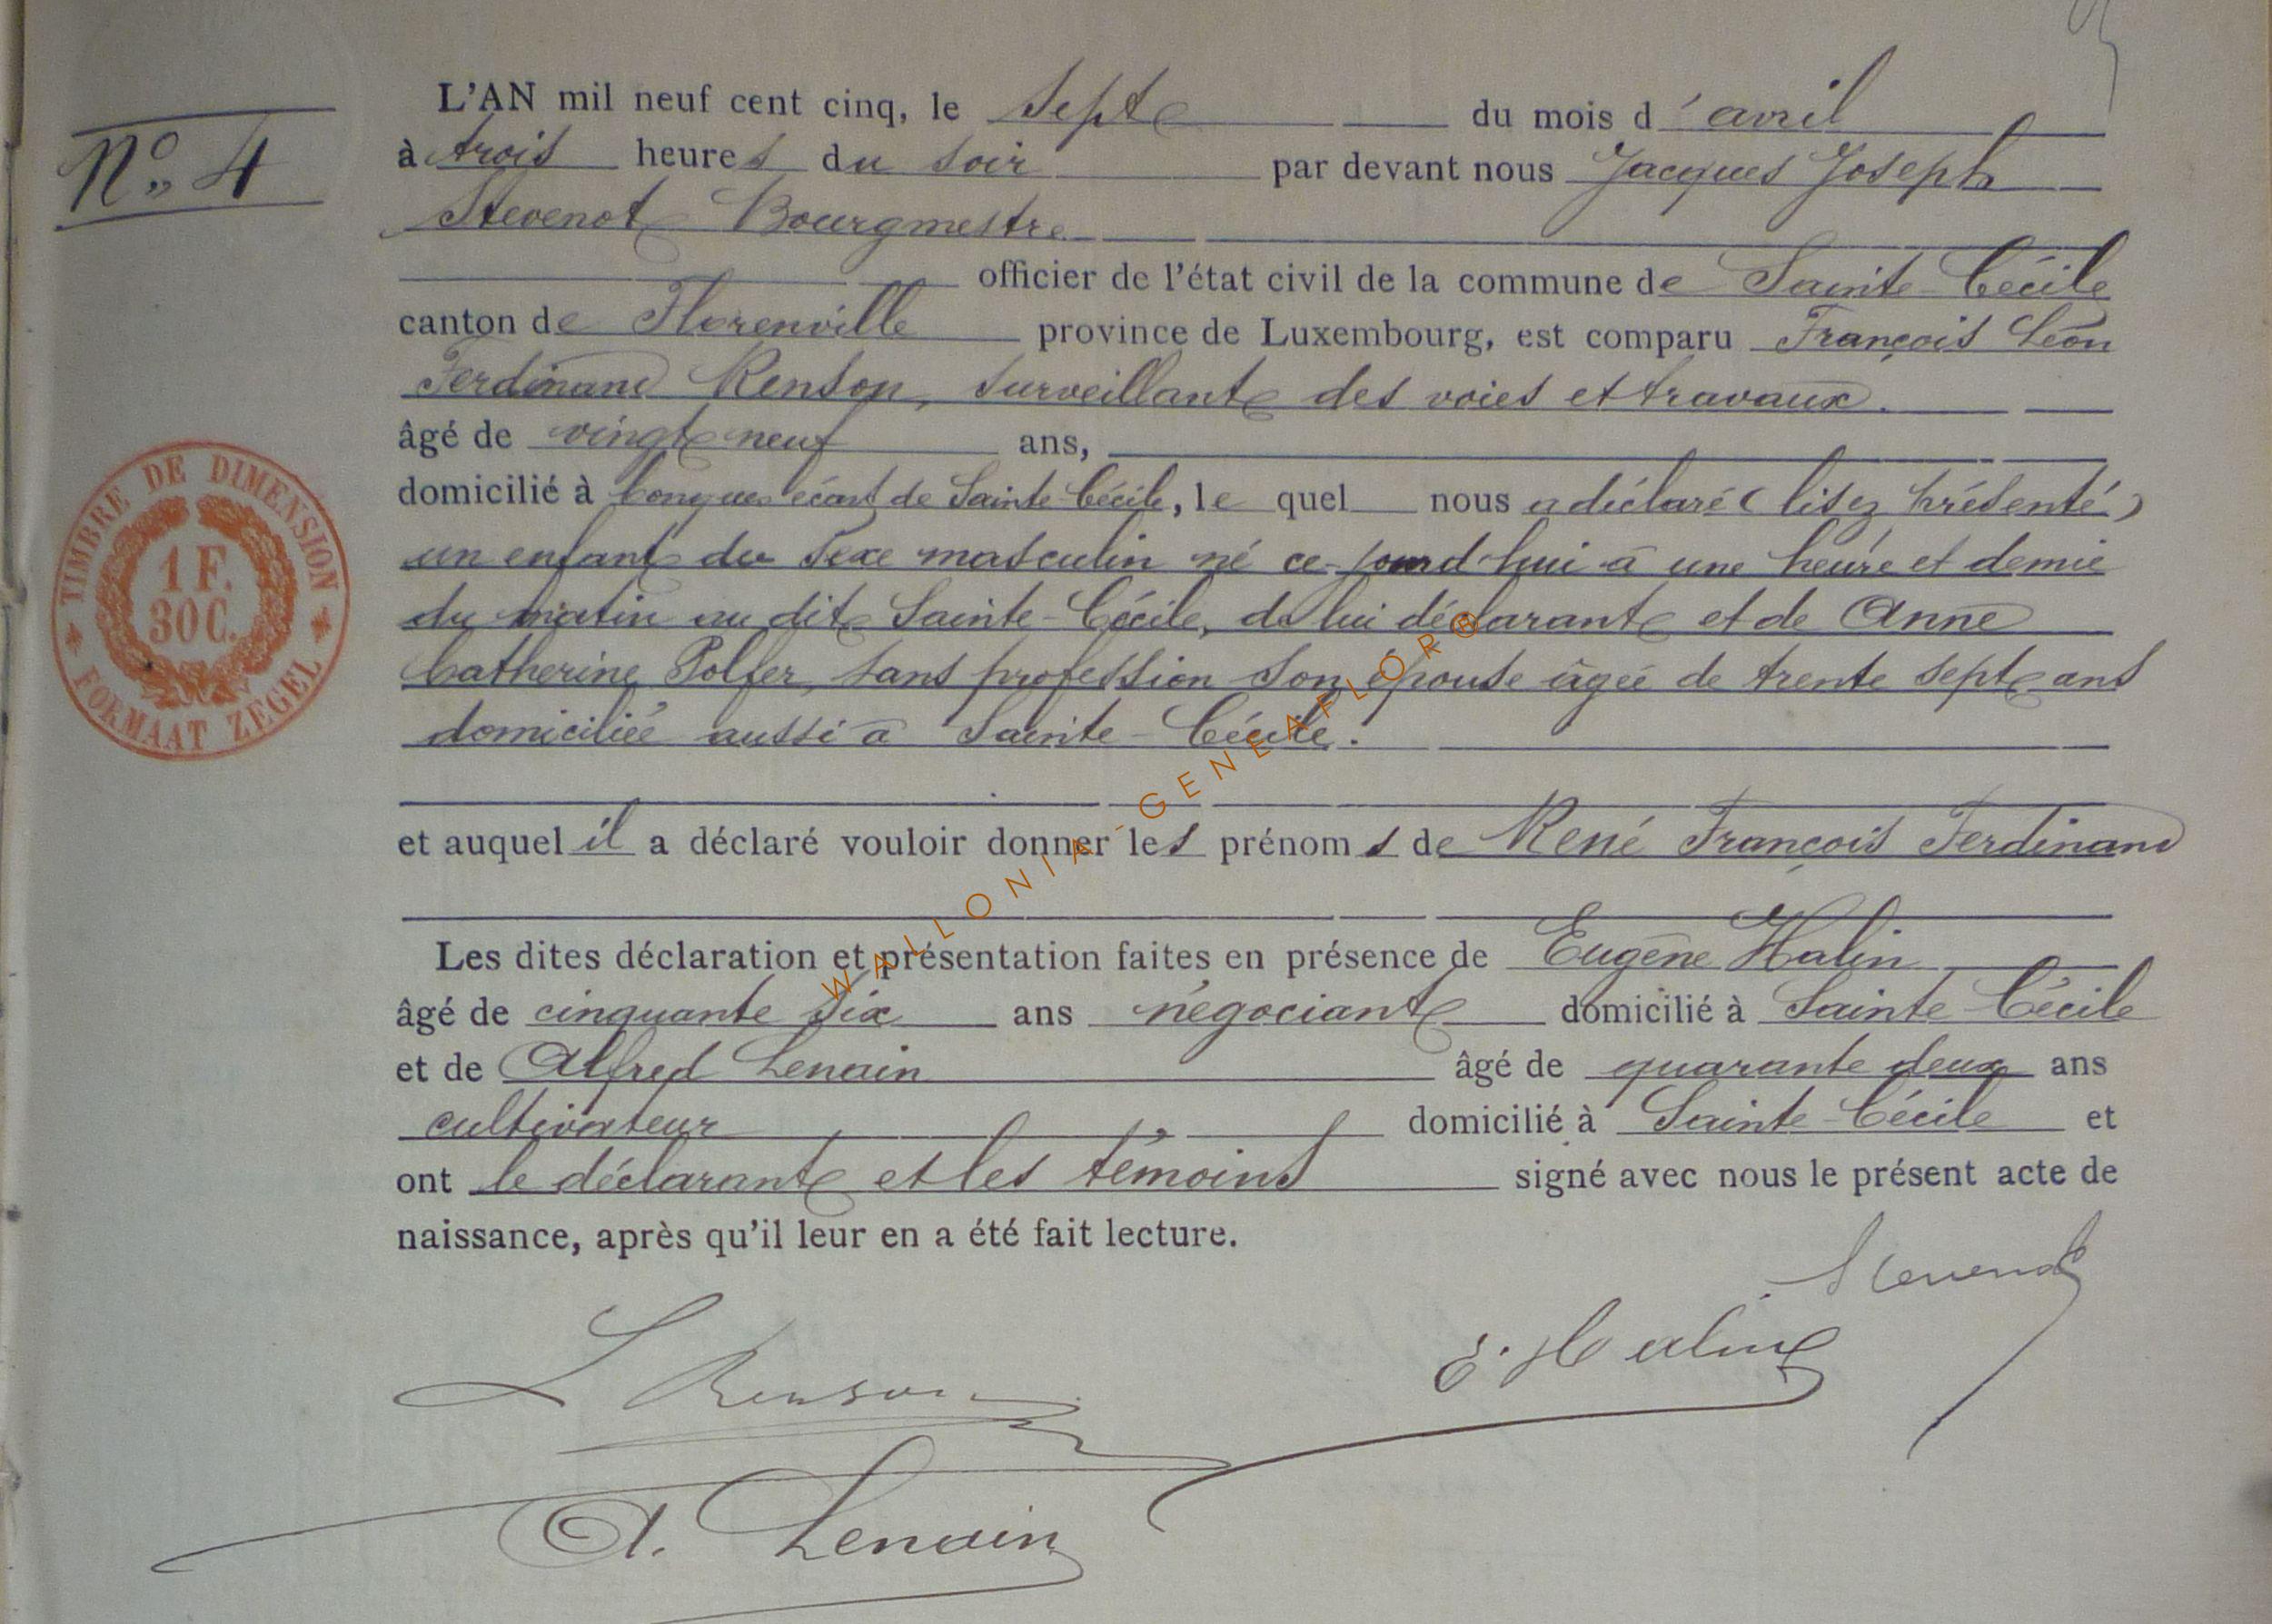 N° 4
L'AN mil neuf cent cinq, le sept du mois d'avril
à trois heures du soir par devant nous Jacques Joseph
Stevenot Bourgmestre
officier de l'état civil de la commune de Sainte-Cécile
canton de Florenville province de Luxembourg, est comparu François Léon
Ferdinand Renson, surveillant des voies et travaux.
âgé de vingt neuf ans,
domicilié à Conques écart de Sainte-Cécile, le quel nous a déclaré (lisez présenté)
un enfant du sexe masculin né ce jourd'hui à une heure et demie
du matin au dit Sainte-Cécile, de lui déclarant et de Anne
Catherine Polfer, sans profession son épouse âgée de trente sept ans
domiciliée aussi à Sainte-Cécile.
et auquel il a déclaré vouloir donner les prénoms de René François Ferdinand
Les dites déclaration et présentation faites en présence de Eugène Halin
âgé de cinquante six ans négociant domicilié à Sainte Cécile
et de Alfred Lenain âgé de quarante deux ans
cultivateur, domicilié à Sainte-Cécile et
ont le déclarant et les témoins signé avec nous le présent acte de
naissance, après qu'il leur en a été fait lecture.
Stevenot
E. Halin
L Renson
A. Lenain
TIMBRE DE DIMENSION
1 F.
30 C.
FORMAAT ZEGEL
WALLONIA-GENEAFLOR®